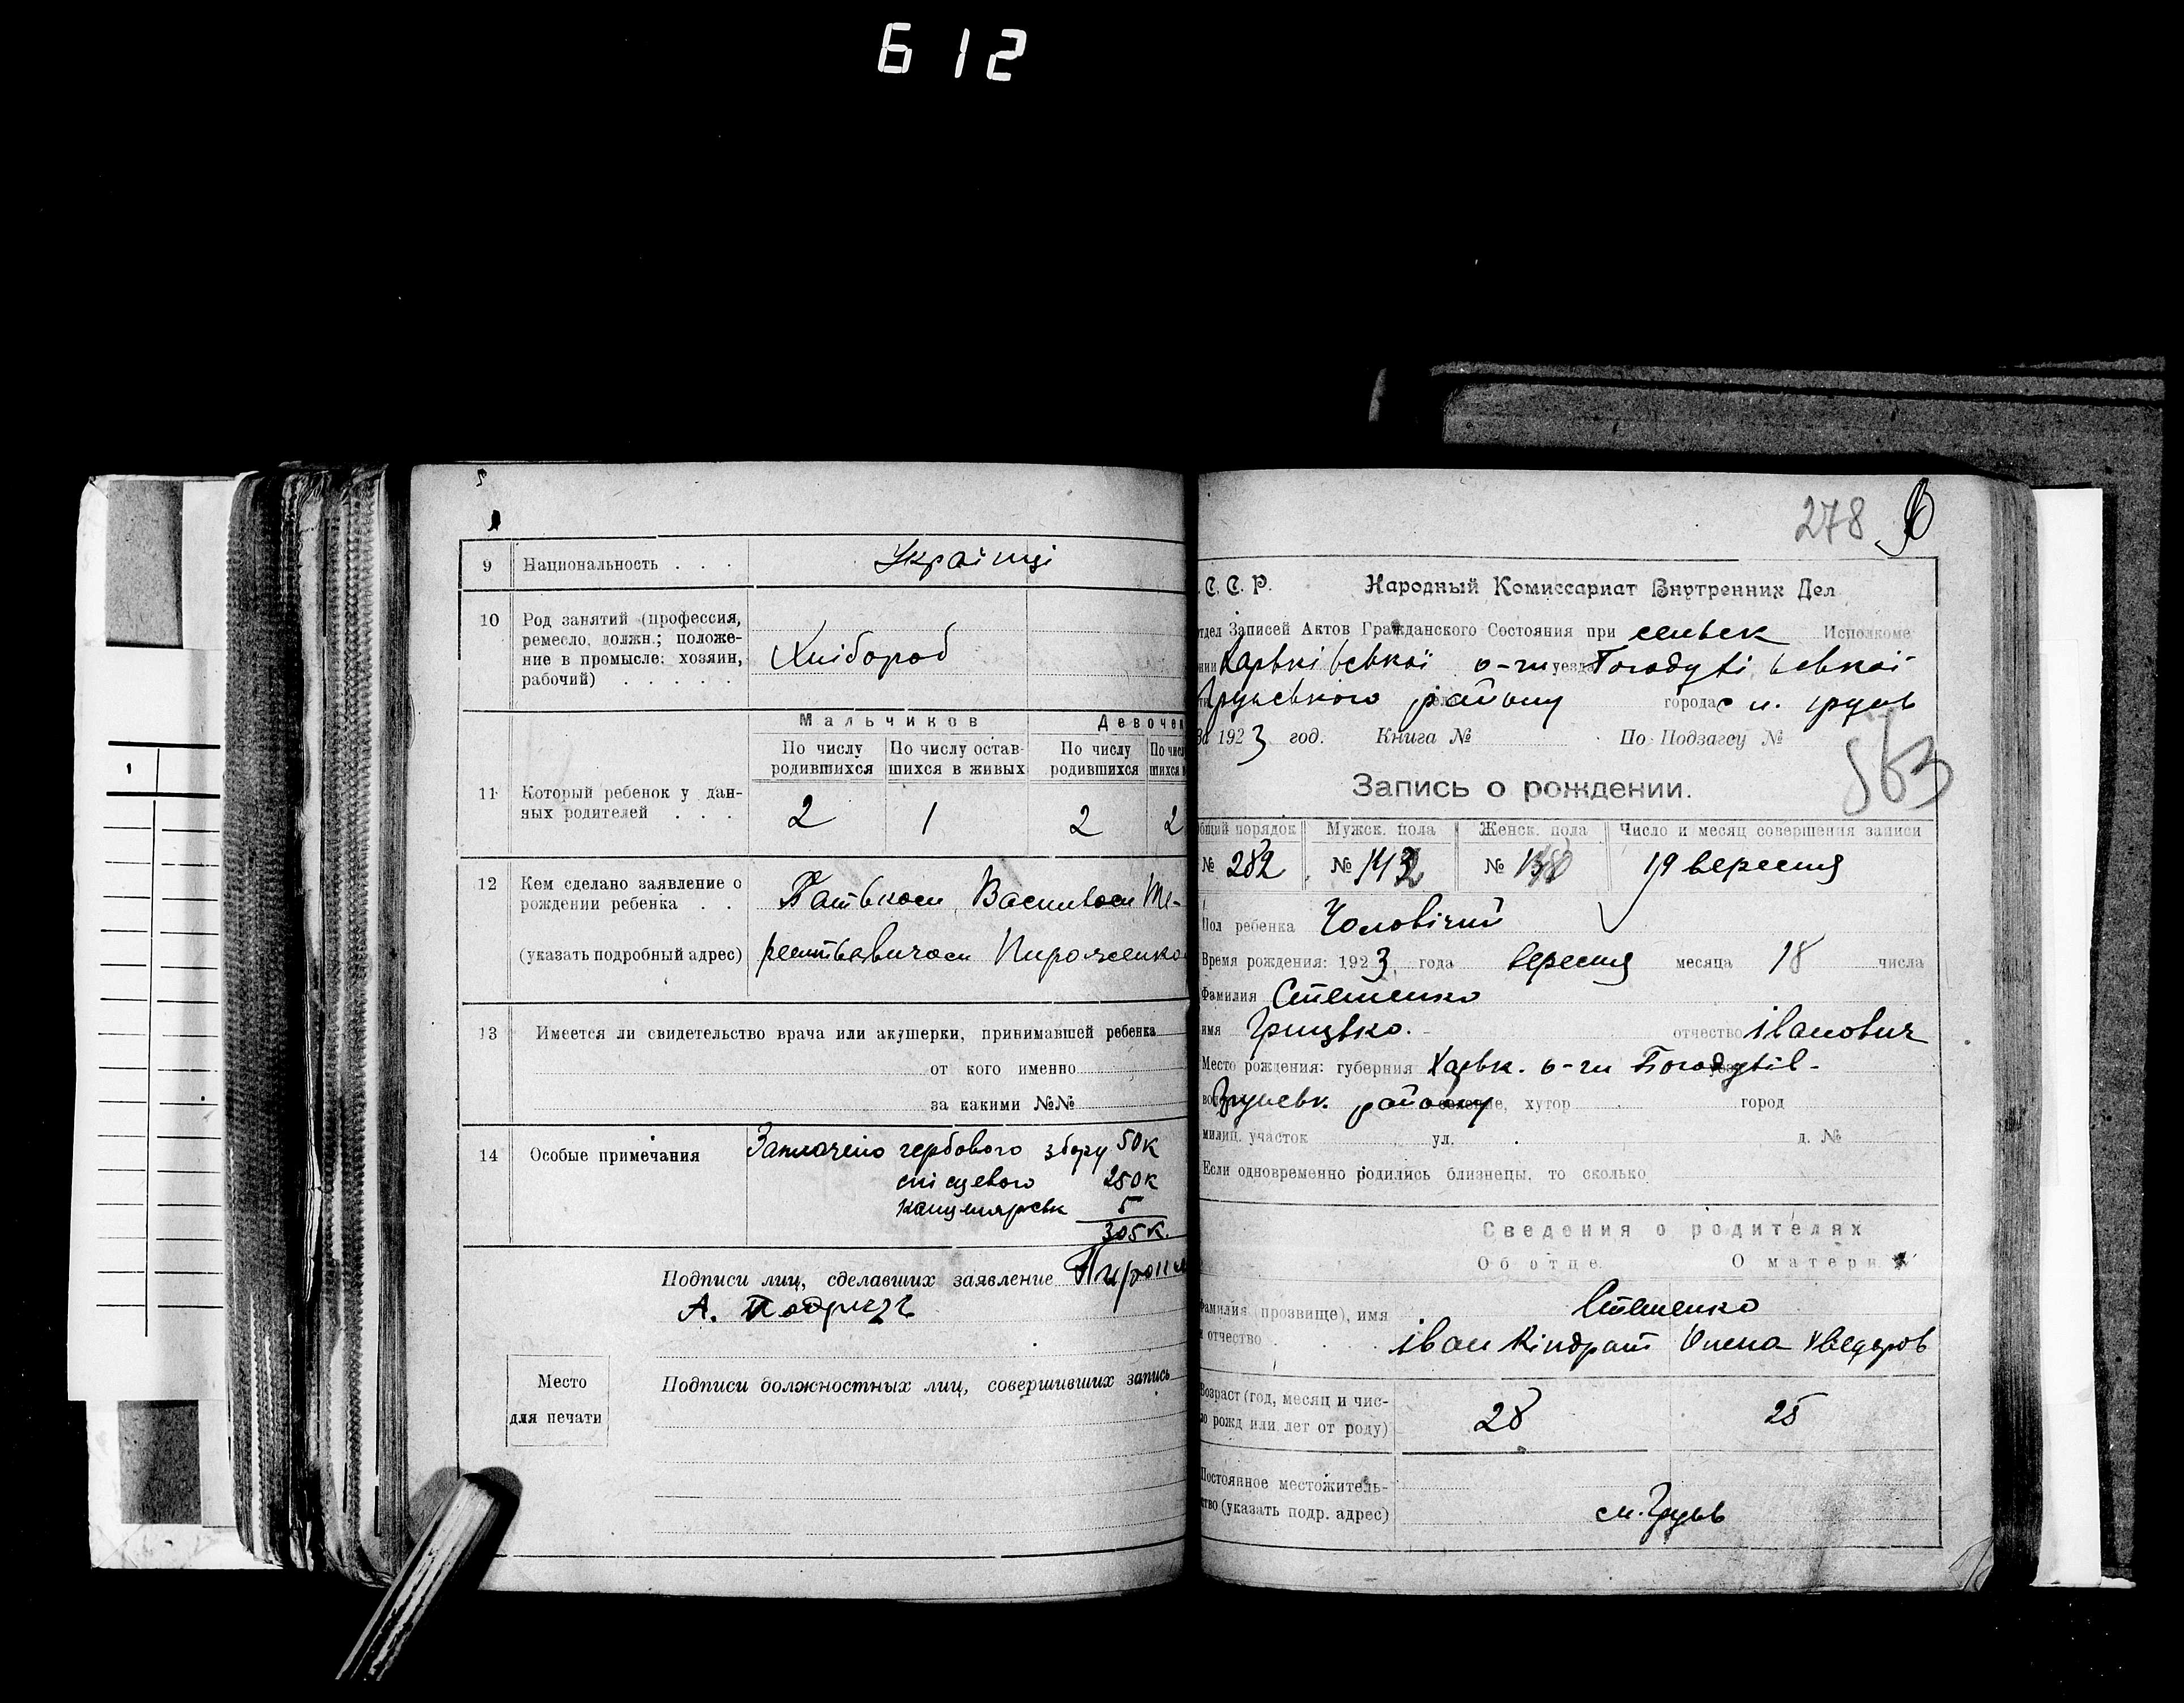 612
9 Национальность . . . Українці
10 Род занятий (профессия,
ремесло, должн.; положе-
ние в промысле: хозяин,
рабочий) . . . . .
Хлібороб
Мальчиков Девочек
По числу родившихся По числу остав- шихся в живых По числу родившихся
11 Который ребенок у дан-
ных родителей . . .
2 1 2 2
12 Кем сделано заявление о
рождении ребенка . .
(указать подробный адрес)
Батьком, Василем Те-
рентьевичом Пироженко
13 Имеется ли свидетельство врача или акушерки, принимавшей ребенка
от кого именно
за какими №№
14 Особые примечания
Заплочено гербового збору 50к
місцевого 250к
канцелярськ 5
305к.
Подписи лиц, сделавших заявление
А.
Место
для печати
Подписи должностных лиц, совершивших запись
278
С. С. Р. Народный Комиссариат Внутренних Дел
отдел Записей Актов Гражданского Состояния при сельвек Исполкоме
Харьківської о-ги уезда Богодухівської
Грунського району города с м. Грунь
За 1923 год. Книга № По Подзагсу №
563
Запись о рождении.
общий порядок Мужск. пола Женск. пола Число и месяц совершения записи
№ 282 № 142 № 19 вересня
Пол ребенка Чоловічий
Время рождения: 1923, года вересня месяца 18 числа
Фамилия Стешенко
имя Грицько. отчество Іванович
Место рождения: губерния Харьк. о-ги Богодухів-
Груньськ. району селение, хутор город
милиц. участок ул. д. №
Если одновременно родились близнецы, то сколько
Сведения о родителях
Об отце. О матери.
Фамилия (прозвище), имя
и отчество . . . .
Стешенко
Іван Кіндрат Олена Хведоров
Возраст (год, месяц и чис-
ло рожд или лет от роду)
28 25
Постоянное местожитель-
ство (указать подр. адрес)
м. Грунь